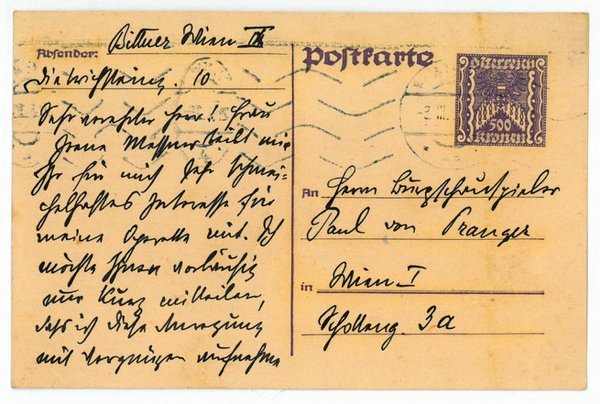 Absender: Bittner Wien IX
Dietrichsteing. 10
Sehr verehrter Herr! Frau
Irene Messner teilt mir
Ihr für mich sehr schmei-
chelhaftes Interesse für
meine Operette mit. Ich
möchte Ihnen vorläufig
nur kurz mitteilen,
dass ich diese Anregung
mit Vergnügen aufnehme
Postkarte
Österreich
500
Kronen
An Herrn Burgschauspieler
Paul von Pranger
in Wien I
Schotteng. 3a